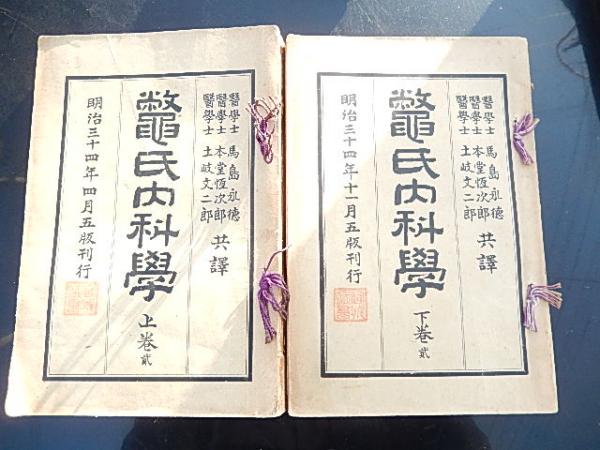 醫學士 馬島永德
醫學士 本堂恆次郎
醫學士 土岐文二郎
共譯
鼈氏内科學
上卷貳
明治三十四年四月五版刊行
醫學士 馬島永德
醫學士 本堂恆次郎
醫學士 土岐文二郎
共譯
鼈氏内科學
下卷貳
明治三十四年十一月五版刊行